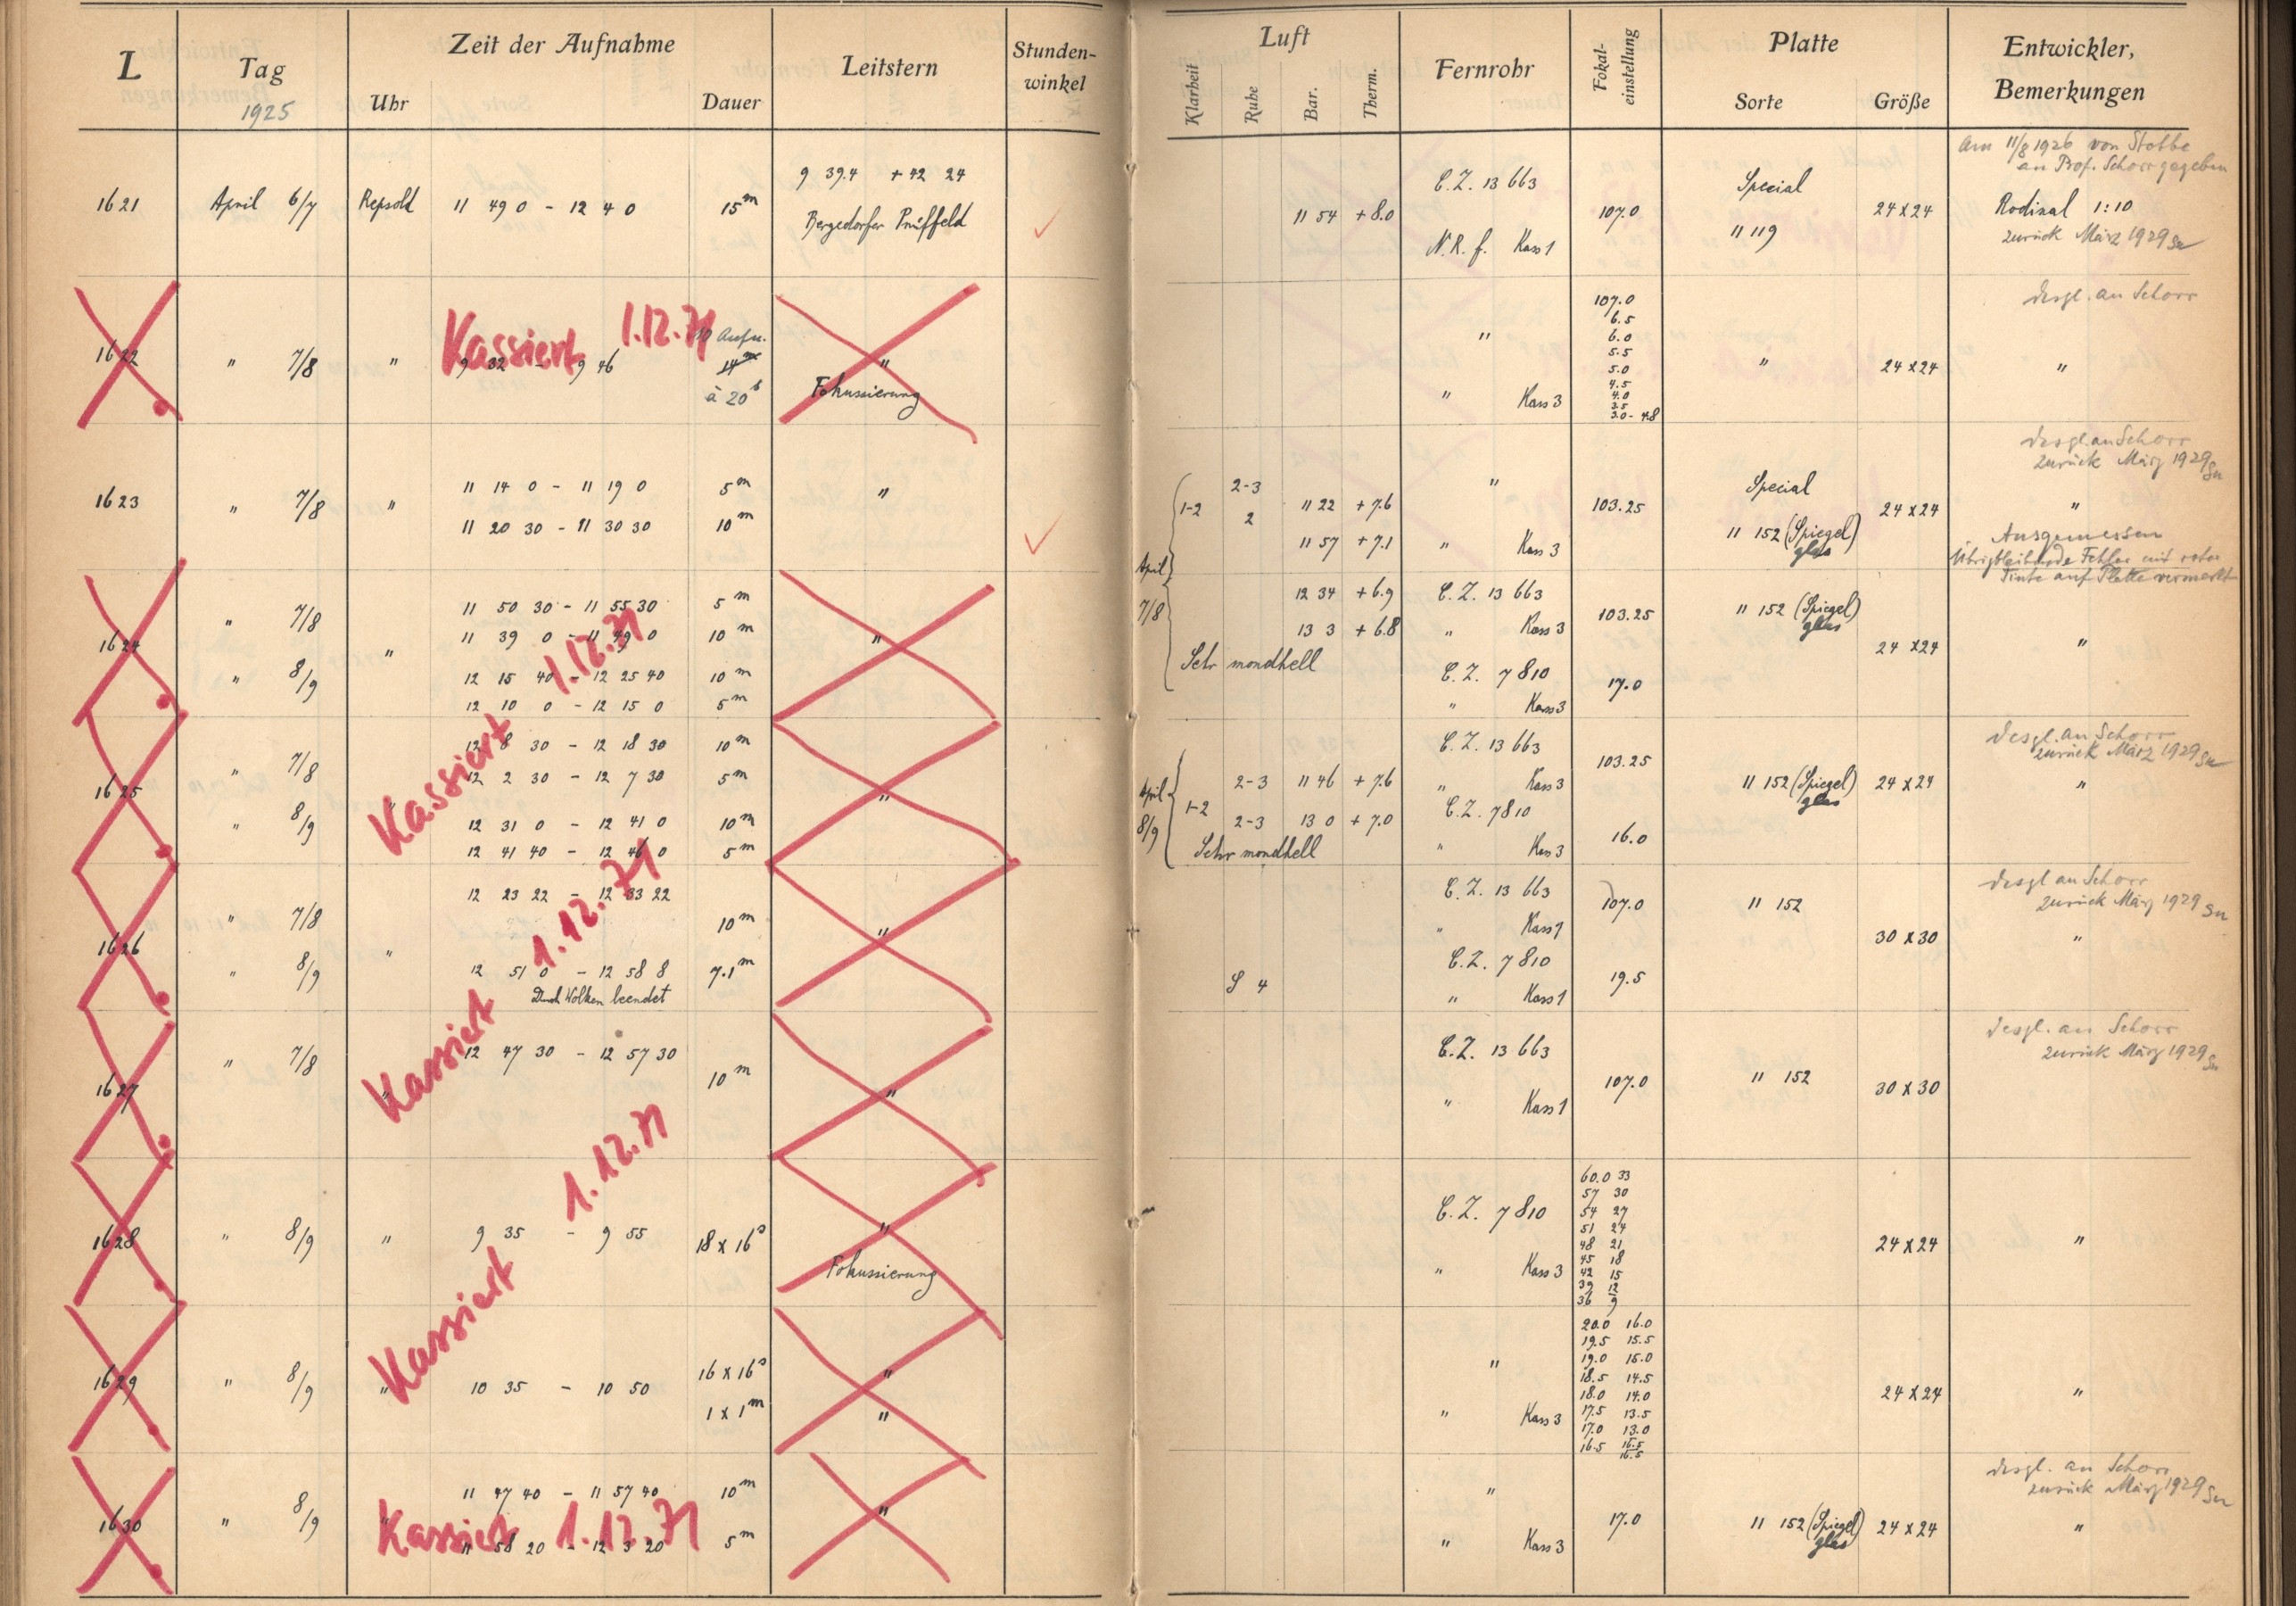 L Tag Zeit der Aufnahme Leitstern Stunden-
winkel
1925 Uhr Dauer
Luft Fernrohr Fokal-
einstellung Platte Entwickler,
Bemerkungen
Klarheit Ruhe Bar. Therm. Sorte Größe
9 39.4 + 42 24
1621 April 6/7 Repsold 11 49 0 - 12 4 0 15m
Bergedorfer Prüffeld
Am 11/8 1926 von Stobbe
an Prof. Schorr gegeben
C.Z. 13 663 Special
11 54 + 8.0 107.0 24 x 24 Rodinal 1:10
N.R.f. Kass 1 11 119 zurück März 1929
Kassiert 1.12.71
10 Aufn.
1622 " 7/8 " 9 32 - 9 46 14m "
à 20s Fokussierung
desgl. an Schorr
107.0
6.5
" 6.0
5.5
5.0 " 24 x 24 "
4.5
" Kass 3 4.0
3.5
3.0 - 4.8
11 14 0 - 11 19 0 5m
1623 " 7/8 " "
11 20 30 - 11 30 30 10m
desgl. an Schorr
zurück März 1929
2-3 " Special
1-2 11 22 + 7.6 103.25 24 x 24 "
2
11 57 + 7.1 " Kass 3 11 152 (Spiegel)
glas
Ausgemessen
Übrigbleibende Fehler mit roter
Tinte auf Platte vermerkt
" 7/8 11 50 30 - 11 55 30 5m
11 39 0 - 11 49 0 10m
1624 " "
" 8/9 12 15 40 - 12 25 40 10m
12 10 0 - 12 15 0 5m
Kassiert 1.12.71
April
7/8
12 34 + 6.9 C.Z. 13 663
103.25 11 152 (Spiegel)
glas
13 3 + 6.8 " Kass 3
24 x 24 "
Sehr mondhell C.Z. 7 810
17.0
" Kass 3
12 8 30 - 12 18 30 10m
" 7/8 12 2 30 - 12 7 30 5m
1625 " "
" 8/9 12 31 0 - 12 41 0 10m
12 41 40 - 12 46 0 5m
desgl. an Schorr
zurück März 1929
C.Z. 13 663
103.25
April
8/9
1-2 2-3 11 46 + 7.6 " Kass 3 11 152 (Spiegel)
glas 24 x 24 "
2-3 13 0 + 7.0 C.Z. 7810
16.0
Sehr mondhell " Kass 3
12 23 22 - 12 33 22
" 7/8 10m
1626 " "
" 8/9 12 51 0 - 12 58 8 7.1m
Durch Wolken beendet
Kassiert 1.12.71
desgl an Schorr
zurück März 1929
C.Z. 13 663 107.0 11 152
" Kass 1
30 x 30 "
C.Z. 7 810
S 4 19.5
" Kass 1
" 7/8 12 47 30 - 12 57 30
10m
1627 " "
desgl. an Schorr
zurück März 1929
C.Z. 13 663
107.0 11 152 30 x 30
" Kass 1
1628 " 8/9 " 9 35 - 9 55 18 x 16s "
Fokussierung
Kassiert 1.12.71
60.0 33
57 30
C.Z. 7 810 54 27
51 24
48 21 24 x 24 "
45 18
" Kass 3 42 15
39 12
36 9
16 x 16s "
1629 " 8/9 " 10 35 - 10 50
1 x 1m "
20.0 16.0
19.5 15.5
" 19.0 15.0
18.5 14.5
18.0 14.0 24 x 24 "
" Kass 3 17.5 13.5
17.0 13.0
16.5 16.5
16.5
11 47 40 - 11 57 40 10m
1630 " 8/9 " "
11 58 20 - 12 3 20 5m
Kassiert 1.12.71
desgl. an Schorr
zurück März 1929
"
17.0 11 152 (Spiegel)
glas 24 x 24 "
" Kass 3